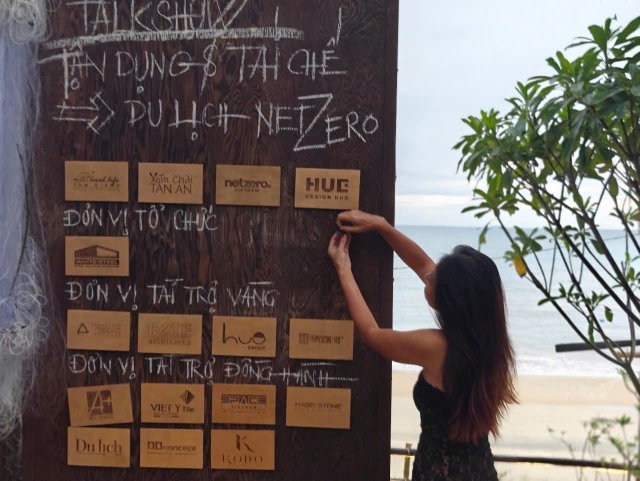 TALKSHOW
TẬN DỤNG & TÁI CHẾ
DU LỊCH NETZERO
Xóm Chài
TÂN AN
netzero
VIETNAM
HUE
DESIGN HUB
ĐƠN VỊ TỔ CHỨC
WHITE STEEL
ĐƠN VỊ TÀI TRỢ VÀNG
hue
GROUP
ĐƠN VỊ TÀI TRỢ ĐỒNG HÀNH
A+
VIETY Tile
HAGRI STONE
Du lịch
concept
K
KODO